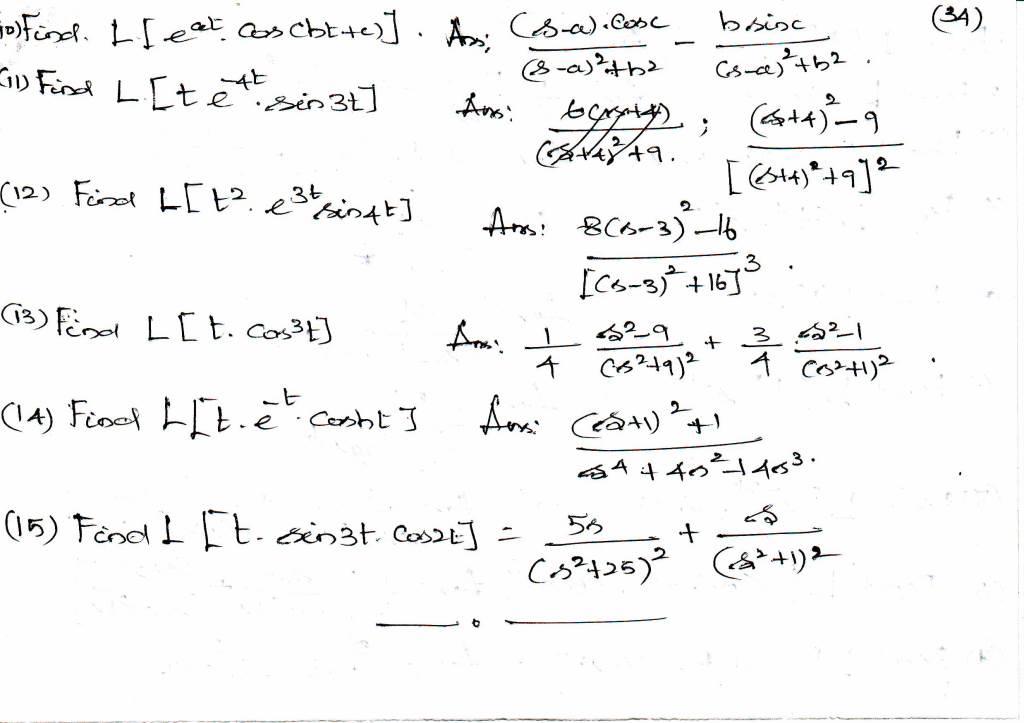 (34)
10) Find. L[e^{at}. cos(bt+c)]. Ans: \frac{(s-a).cosc}{(s-a)^2+b^2} - \frac{b sinc}{(s-a)^2+b^2}.
(11) Find L[t e^{-4t}. sin3t] Ans: ; \frac{(s+4)^2-9}{[(s+4)^2+9]^2}
(12) Find L[t^2. e^{3t} sin4t] Ans: \frac{8(s-3)^2-16}{[(s-3)^2+16]^3}.
(13) Find L[t. cos^3t] Ans: \frac{1}{4} \frac{s^2-9}{(s^2+9)^2} + \frac{3}{4} \frac{s^2-1}{(s^2+1)^2}.
(14) Find L[t. e^{-t}. cosht] Ans: \frac{(s+1)^2+1}{s^4+4s^2+4s^3}.
(15) Find L[t. sin3t. cos2t] = \frac{5s}{(s^2+25)^2} + \frac{s}{(s^2+1)^2}